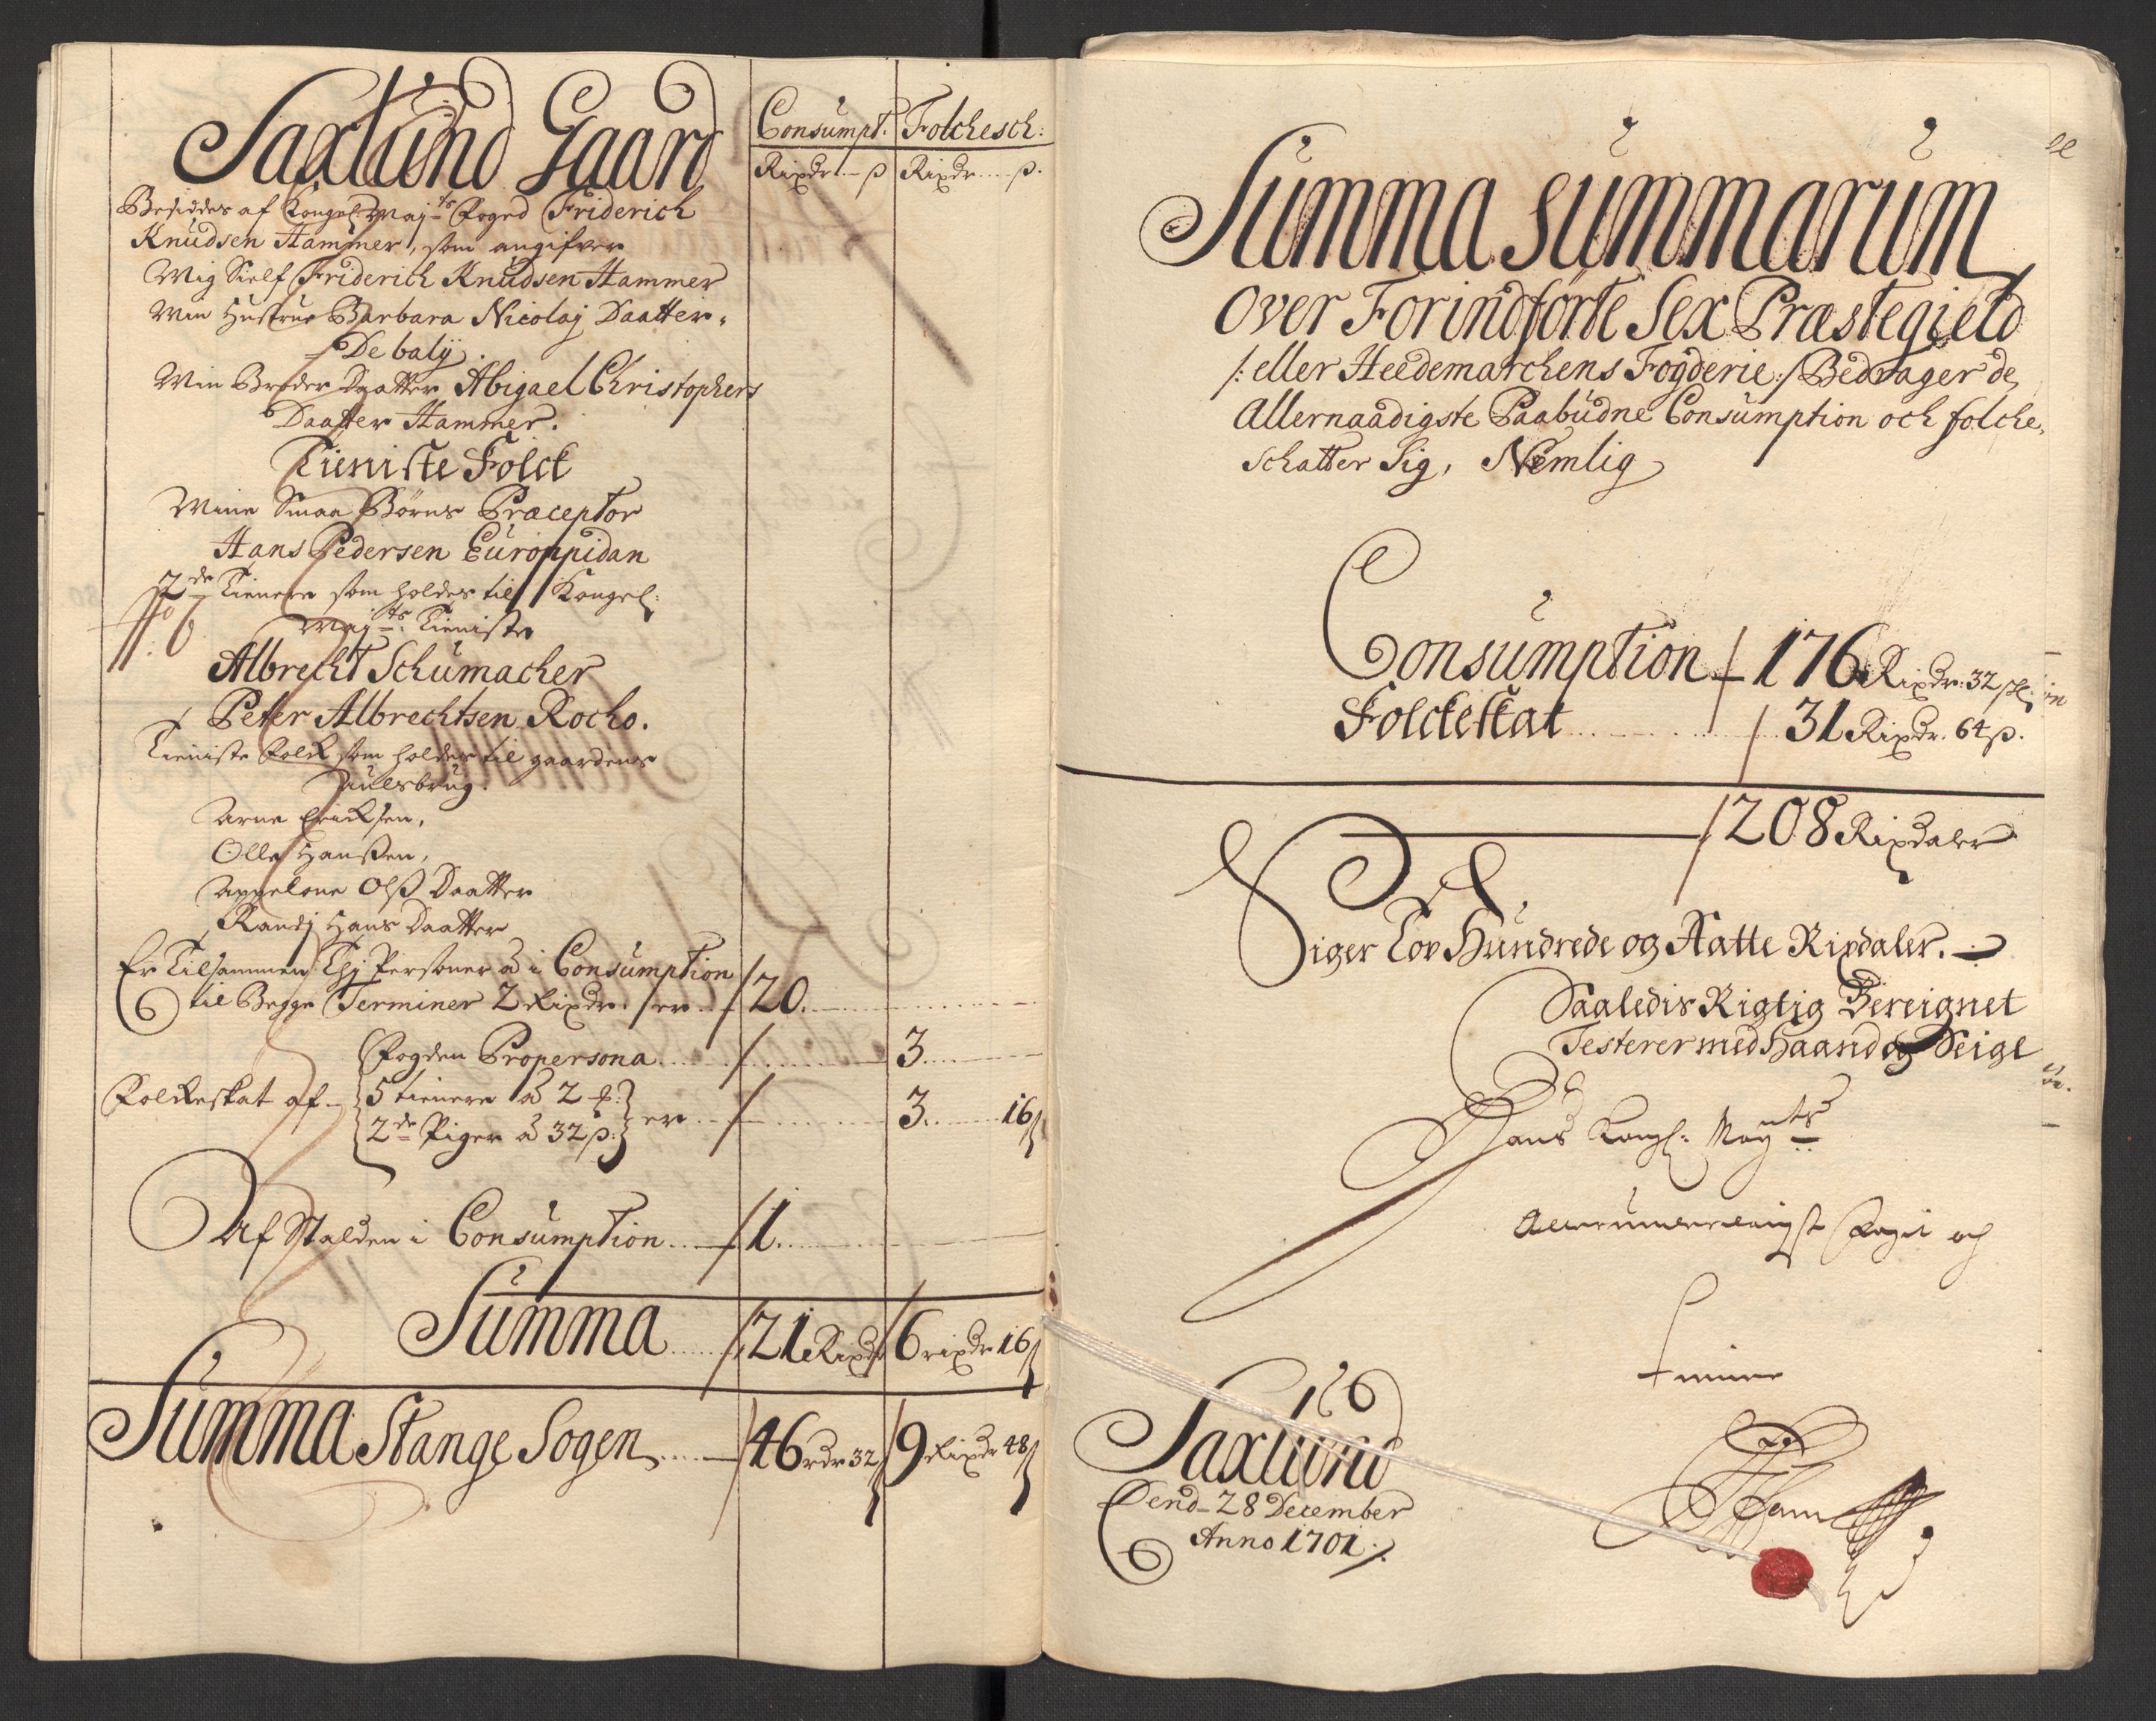 Saxlund Gaard
Consumpt. Folchesch:
Rixdr - ß Rixdr - ß.
Besiddes af Kongel: Maj:ts Foged Friderich
Knudsen Hammer, som angifver
Mig Sielf Friderich Knudsen Hammer
Min Hustrue Barbara Nicolaj Daatter
De baly.
Min Broder Daatter Abigael Christophers
Daatter Hammer.
Tieniste Folck
Mine Smaa Børns Præceptor
Hans Pedersen Europpidan
2de Tienere som holdes til Kongel:
No 6
Maj:ts Tieniste
Albrecht Schumacher
Peter Albrechtsen Rocho.
Tieniste Folck som holdes til gaardens
aulsbrug.
Arne Ericksen,
Olle Hanßen,
Appelone Olß Daatter
Randj Hans Daatter
Er Tilsammen Thj Personer â i Consumption
til Begge Terminer 2 Rixdr. er 20.
Fogden Propersona 3
Folckeskat af 5 tienere â 2
2de Piger â 32 ß: er 3 16
Af Stalden i Consumption 1.
Summa 21 Rixdr 6 rixdr 16
Summa Stange Sogen 46 rdr 32 9 Rixdr 48
Summa Summarum
Over Forindførte Sex Præstegield
/: eller Heedemarchens Fogderie :/ Bedrager de
Allernaadigste Paabudne Consumption och folche
schatter Sig, Nemlig
Consumption 176 Rixdr: 32 sh:
Folckeskat 31 Rixdr. 64 ß.
208 Rixdaler
Siger Tov Hundrede og Aatte Rixdaler.
Saaledis Rigtig Bereignet
Testerer med Haand og Seigl
Hans Kongl: Mayts
Allerunderdanigst Foget och
Saxlund
Dend 28 December
Anno 1701.